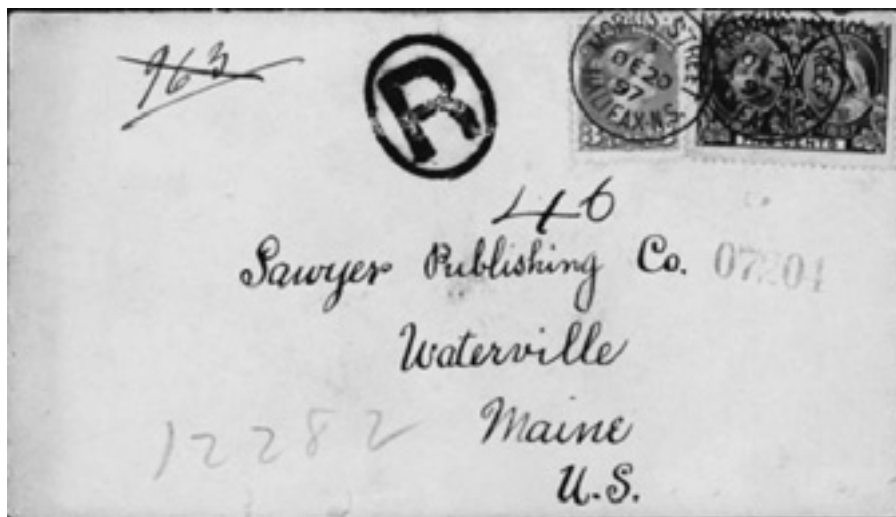 963
R
MORRIS·STREET
DE 20
97
HALIFAX N.S.
CENTS
46
Sawyer Publishing Co. 07204
Waterville
12282 Maine
U.S.